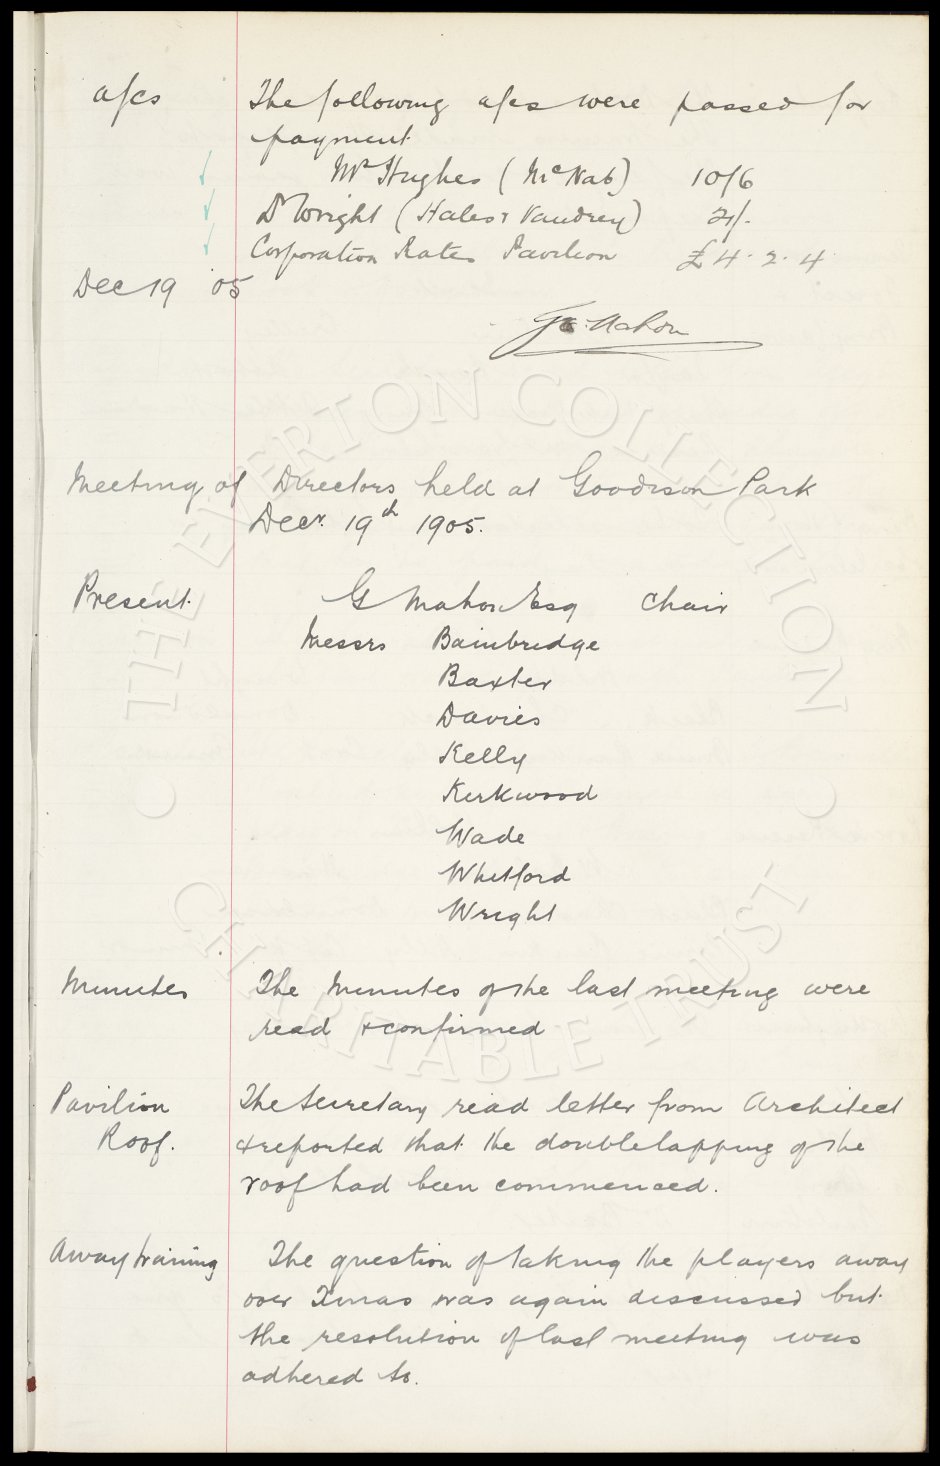 a/cs The following a/cs were passed for
payment.
Mr Hughes (McNab) 10/6
D Wright (Hales & Vaudrey) 21/-
Corporation Rates Pavilion £4.2.4
Dec 19 05
Geo. Mahon
Meeting of Directors held at Goodison Park
Decr. 19th 1905.
Present. G Mahon Esq Chair
Messrs Bainbridge
Baxter
Davies
Kelly
Kirkwood
Wade
Whitford
Wright
Minutes The Minutes of the last meeting were
read & confirmed
Pavilion The Secretary read letter from Architect
Roof. & reported that the doublelapping of the
roof had been commenced.
Away training The question of taking the players away
over Xmas was again discussed but
the resolution of last meeting was
adhered to.
THE EVERTON COLLECTION
CHARITABLE TRUST